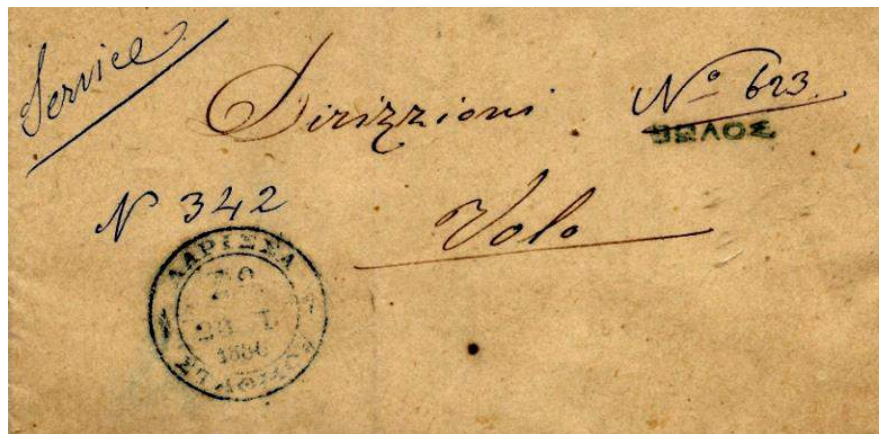 Service
Dirizzioni
Nº 623.
ΒΩΛΟΣ
N 342
Volo
ΛΑΡΙΣΣΑ